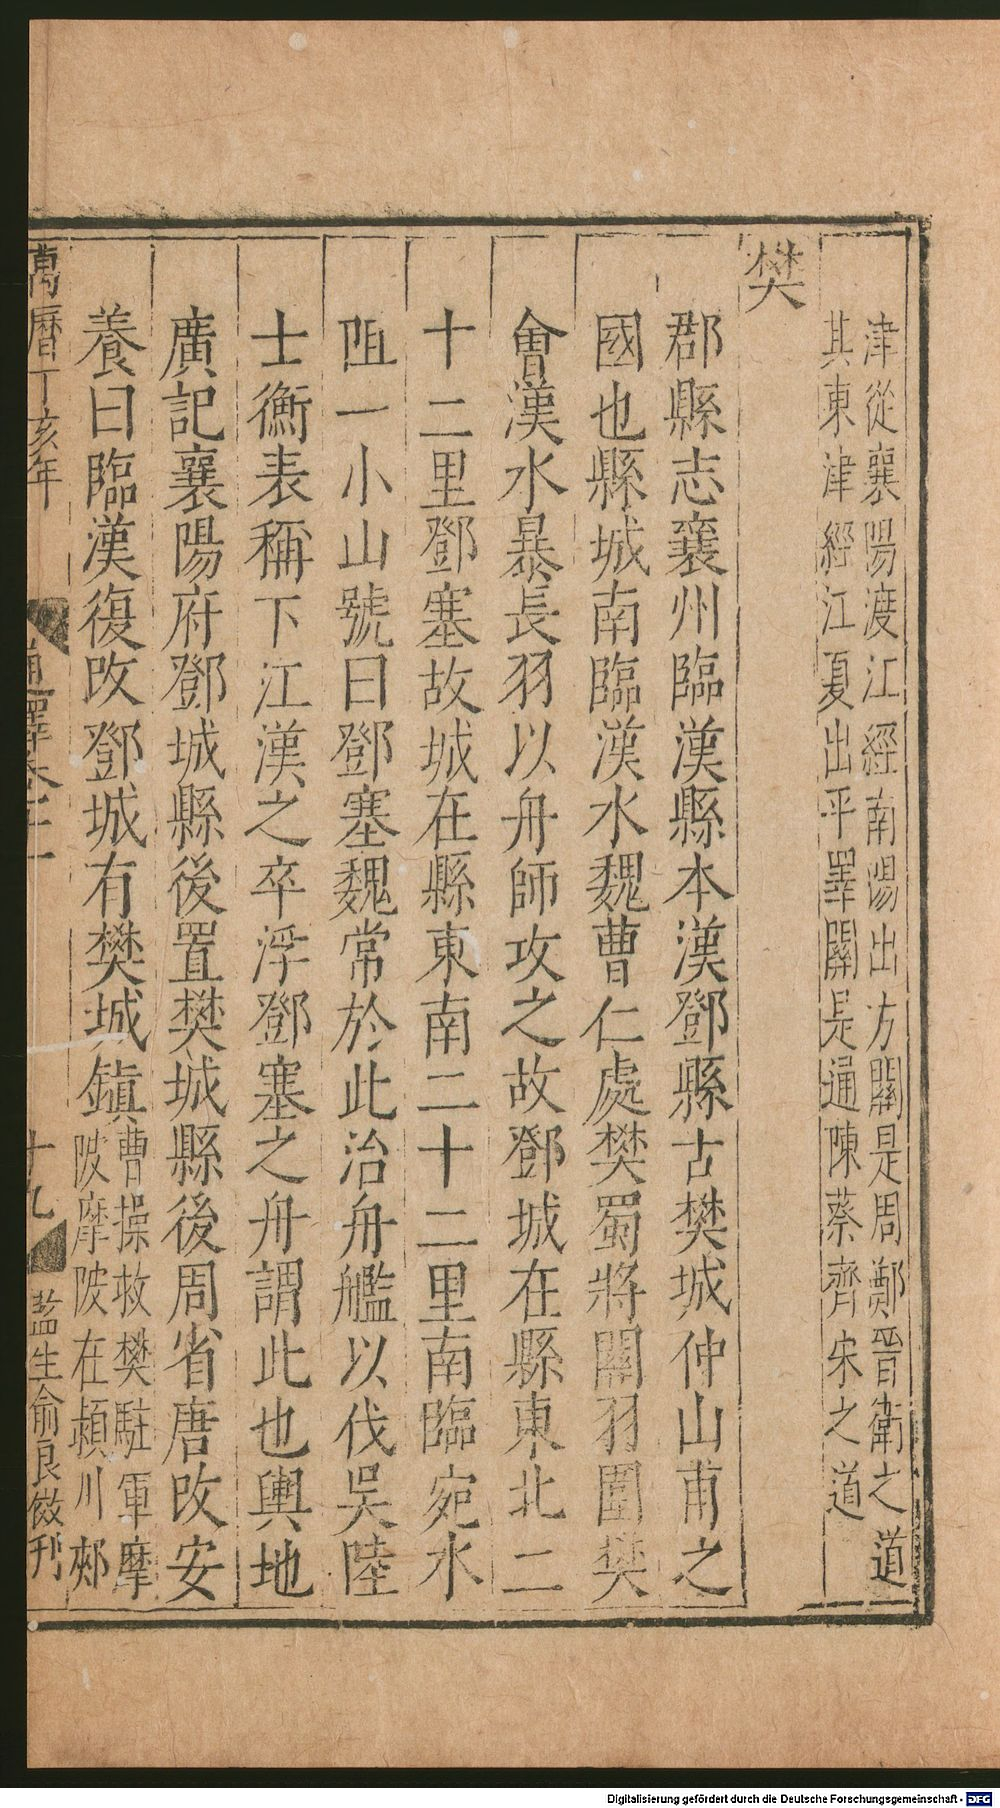 津從襄陽渡江經南陽出方關是周鄭晉衛之道
其東津經江夏出平睪關是通陳蔡齊宋之道
樊
郡縣志襄州臨漢縣本漢鄧縣古樊城仲山甫之
國也縣城南臨漢水魏曹仁處樊蜀將關羽圍樊
會漢水暴長羽以舟師攻之故鄧城在縣東北二
十二里鄧塞故城在縣東南二十二里南臨宛水
阻一小山號曰鄧塞魏常於此治舟艦以伐吳陸
士衡表稱下江漢之卒浮鄧塞之舟謂此也輿地
廣記襄陽府鄧城縣後置樊城縣後周省唐改安
養曰臨漢復改鄧城有樊城鎮曹操救樊駐軍摩
陂摩陂在潁川郟
萬曆丁亥年
通釋卷十一
十九
監生俞良微刊
Digitalisierung gefördert durch die Deutsche Forschungsgemeinschaft - DFG